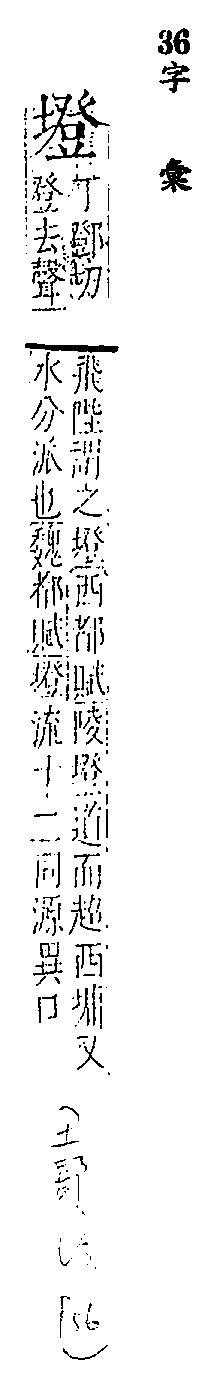 36字彙
墱
丁鄧切
登去聲
飛陛謂之墱西都賦陵墱道而超西墉又
水分派也魏都賦墱流十二同源異口
(土部
56)